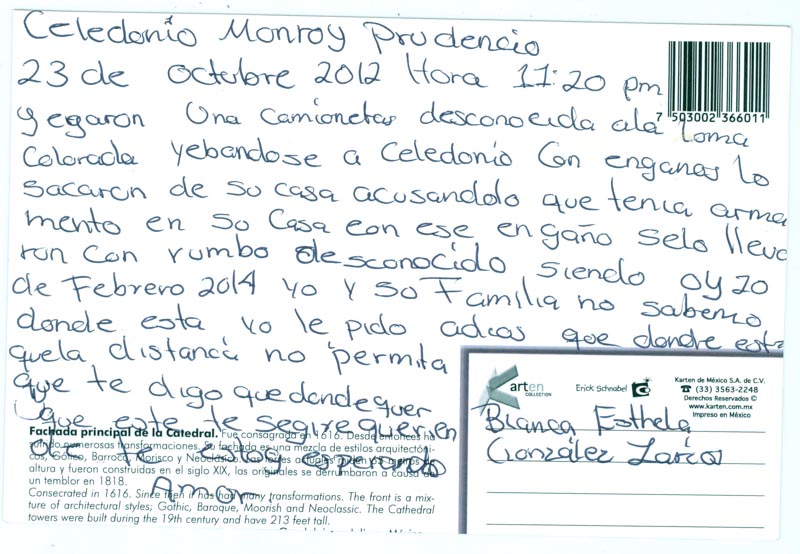 Celedonio Monroy Prudencio
23 de Octubre 2012 Hora 11:20 pm
yegaron Una camionetas desconocida ala Loma
Colorada yebandose a Celedonio Con enganas lo
sacaron de su casa acusandolo que tenia arma
mento en su Casa con ese engaño selo lleva
ron con rumbo desconocido siendo oy 20
de Febrero 2014 yo y so Familia no sabemos
donde esta yo le pido adios que donde esta
quela distanca no permita
que te digo quedondequer
que este te segire querien
do te estoy esperando
Amor.
7 503002 366011
Karten
COLLECTION
Erick Schnabel
Karten de México S.A. de C.V.
☎ (33) 3563-2248
Derechos Reservados ©
www.karten.com.mx
Impreso en México
Blanca Esthela
González Larios
Fachada principal de la Catedral. Fue consagrada en 1616. Desde entonces ha
sufrido numerosas transformaciones. Su fachada es una mezcla de estilos arquitectóni-
cos, Gótico, Barroco, Morisco y Neoclásico. Las torres actuales miden 65 metros de
altura y fueron construidas en el siglo XIX, las originales se derrumbaron a causa de
un temblor en 1818.
Consecrated in 1616. Since then it has had many transformations. The front is a mix-
ture of architectural styles; Gothic, Baroque, Moorish and Neoclassic. The Cathedral
towers were built during the 19th century and have 213 feet tall.